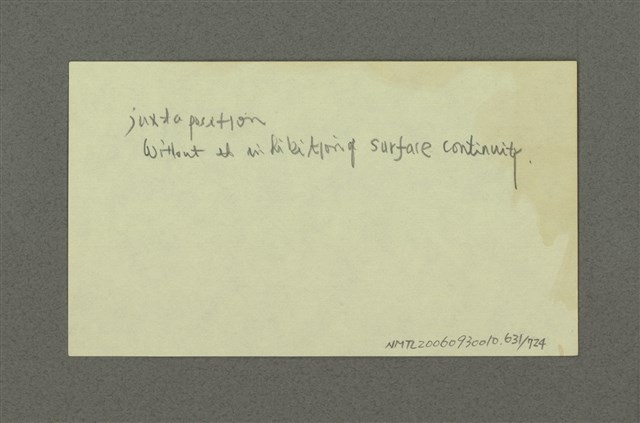 juxtaposition
Without th inhibition of surface continuity.
NMTL20060930010.631/724